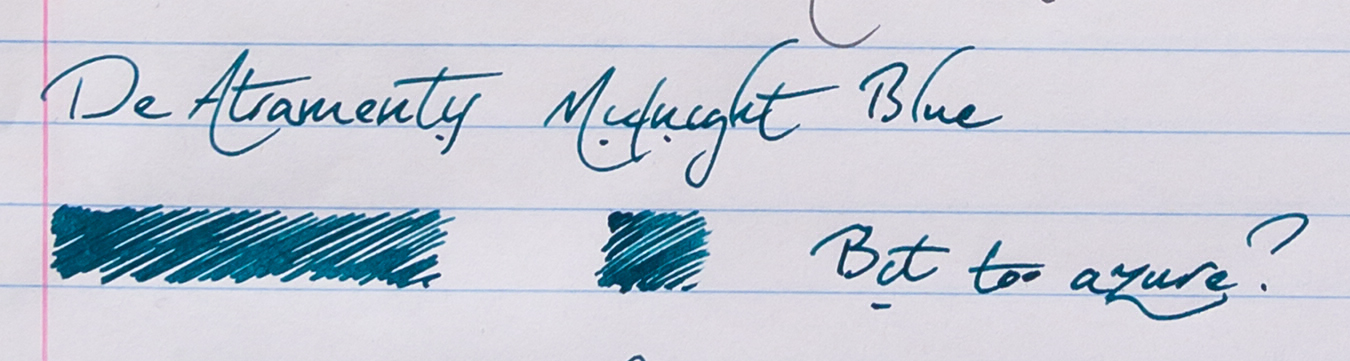 De Atramentis Midnight Blue
Bit too azure?